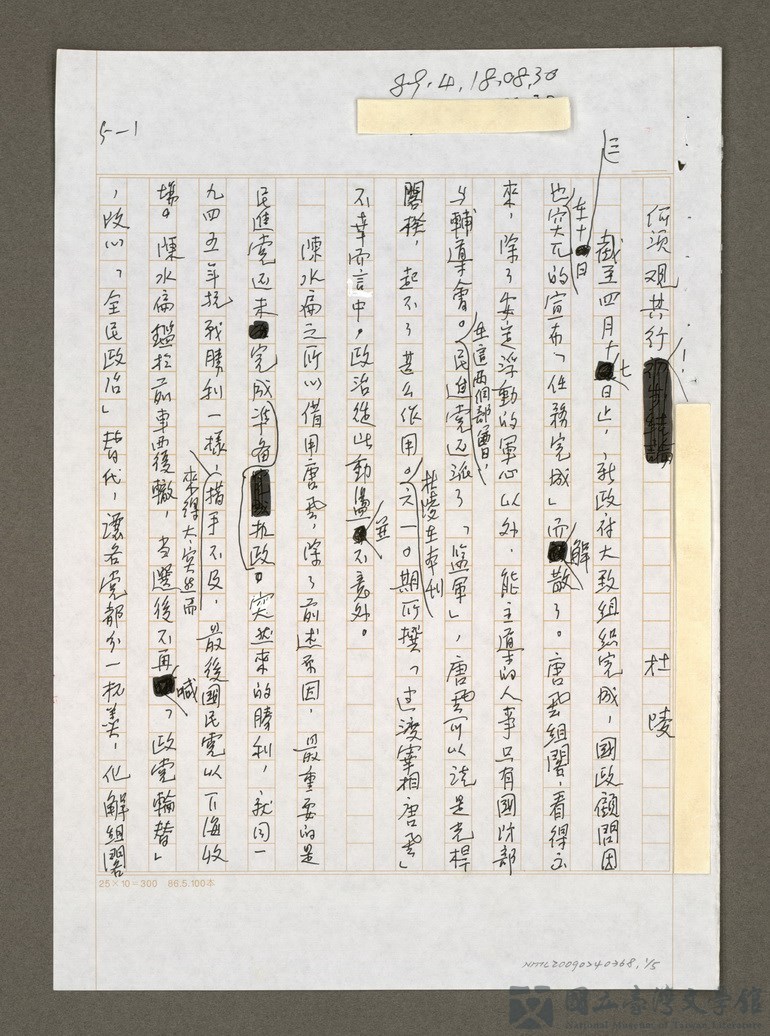 89.4.18.08.30
5-1
何須觀其行!
杜陵
截至四月十七日止,新政府大致組織完成,國政顧問因
也突兀的宣布「任務完成」而解散了。唐飛組閣,看得出
在十日
來,除了安定浮動的軍心以外,能主導的人事只有國防部
與輔導會。在這兩個部會,民進黨还派了「监軍」,唐飛可以說是光桿
閣揆,起不了甚么作用。杜陵在本刊六一〇期所撰「过渡宰相唐飛」
不幸而言中。政治從此動盪並不意外。
陳水扁之所以借用唐飛,除了前述原因,最重要的是
民進党还未完成准备执政。突然來的勝利,就同一
九四五年抗戰勝利一樣,來得太突然而措手不及,最後國民党以下海收
場。陳水扁鑑於前車覆轍,當選後不再喊「政党輪替」
,改以「全民政治」替代,讓各党都分一杯羹,化解組閣
25×10=300 86.5.100本
NMTL20090240368, 1/5
國立臺灣文學館
National Museum of Taiwan Literature